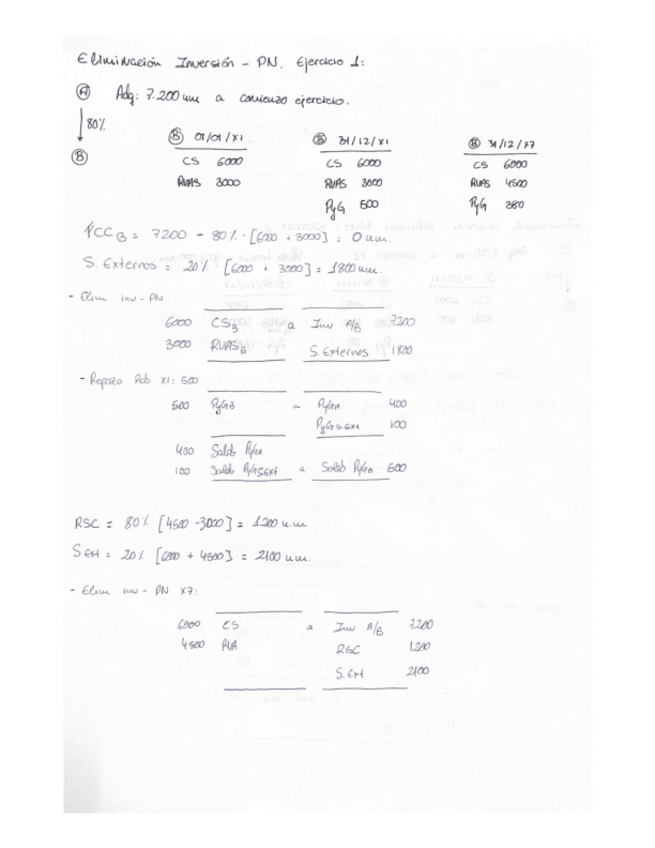 Eliminación Inversión - PN. Ejercicio 1:
A Adq: 7.200 um a comienzo ejercicio.
80%
B
B 01/01/X1 B 31/12/X1 B 31/12/X7
CS 6000 CS 6000 CS 6000
RVAS 3000 RVAS 3000 RVAS 4500
PyG 500 PyG 380
FCC B = 7200 - 80% · [6000 + 3000] = 0 u.m.
S. Externos = 20% · [6000 + 3000] = 1800 um.
- Elim inv - PN
6000 CS B a Inv A/B 7200
3000 RVAS B S. Externos 1800
- Reparto Rdo X1: 500
500 PyG B a PyG A 400
PyG S.Ext 100
400 Saldo PyG A
100 Saldo PyG S.Ext a Saldo PyG B 500
RSC = 80% [4500 - 3000] = 1200 u.m
S Ext = 20% [6000 + 4500] = 2100 u.m.
- Elim inv - PN X7:
6000 CS a Inv A/B 7200
4500 RVA RSC 1200
S. Ext 2100